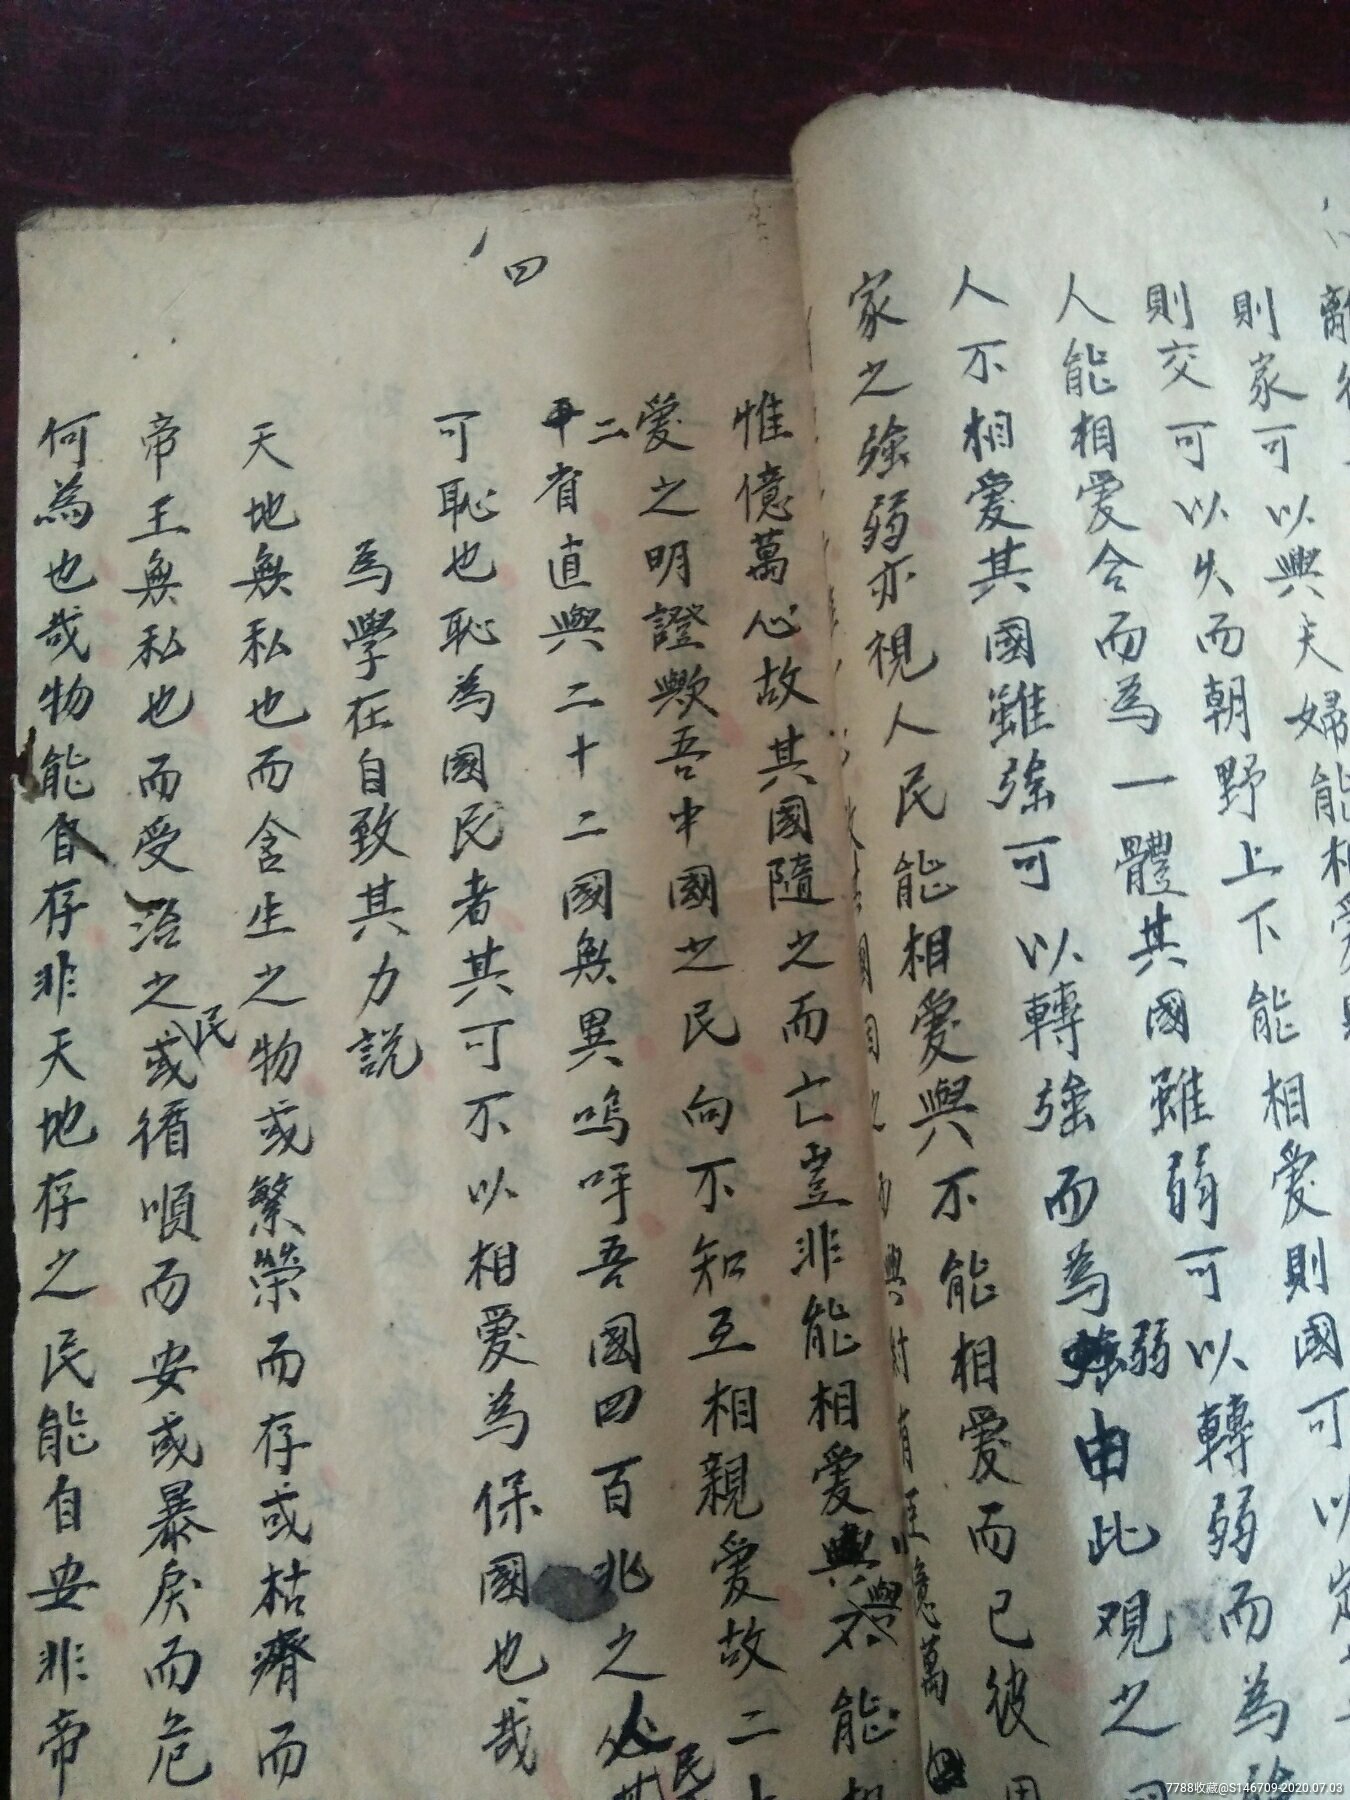 則家可以興夫婦能相愛
則交可以失而朝野上下能相愛則國可以定
人能相愛合而為一體其國雖弱可以轉弱而為強
人不相愛其國雖強可以轉強而為弱由此觀之
家之強弱亦視人民能相愛與不能相愛而已彼
惟億萬心故其國隨之而亡豈非能相愛與不能相
愛之明證歟吾中國之民向不知互相親愛故二十
二省直與二十二國無異嗚呼吾國四百兆之民其
可恥也恥為國民者其可不以相愛為保國也哉
四
為學在自致其力説
天地無私也而含生之物或繁榮而存或枯瘠而
帝王無私也而受治之民或循順而安或暴戾而危
何為也哉物能自存非天地存之民能自安非帝
7788收藏@S146709-2020.07.03